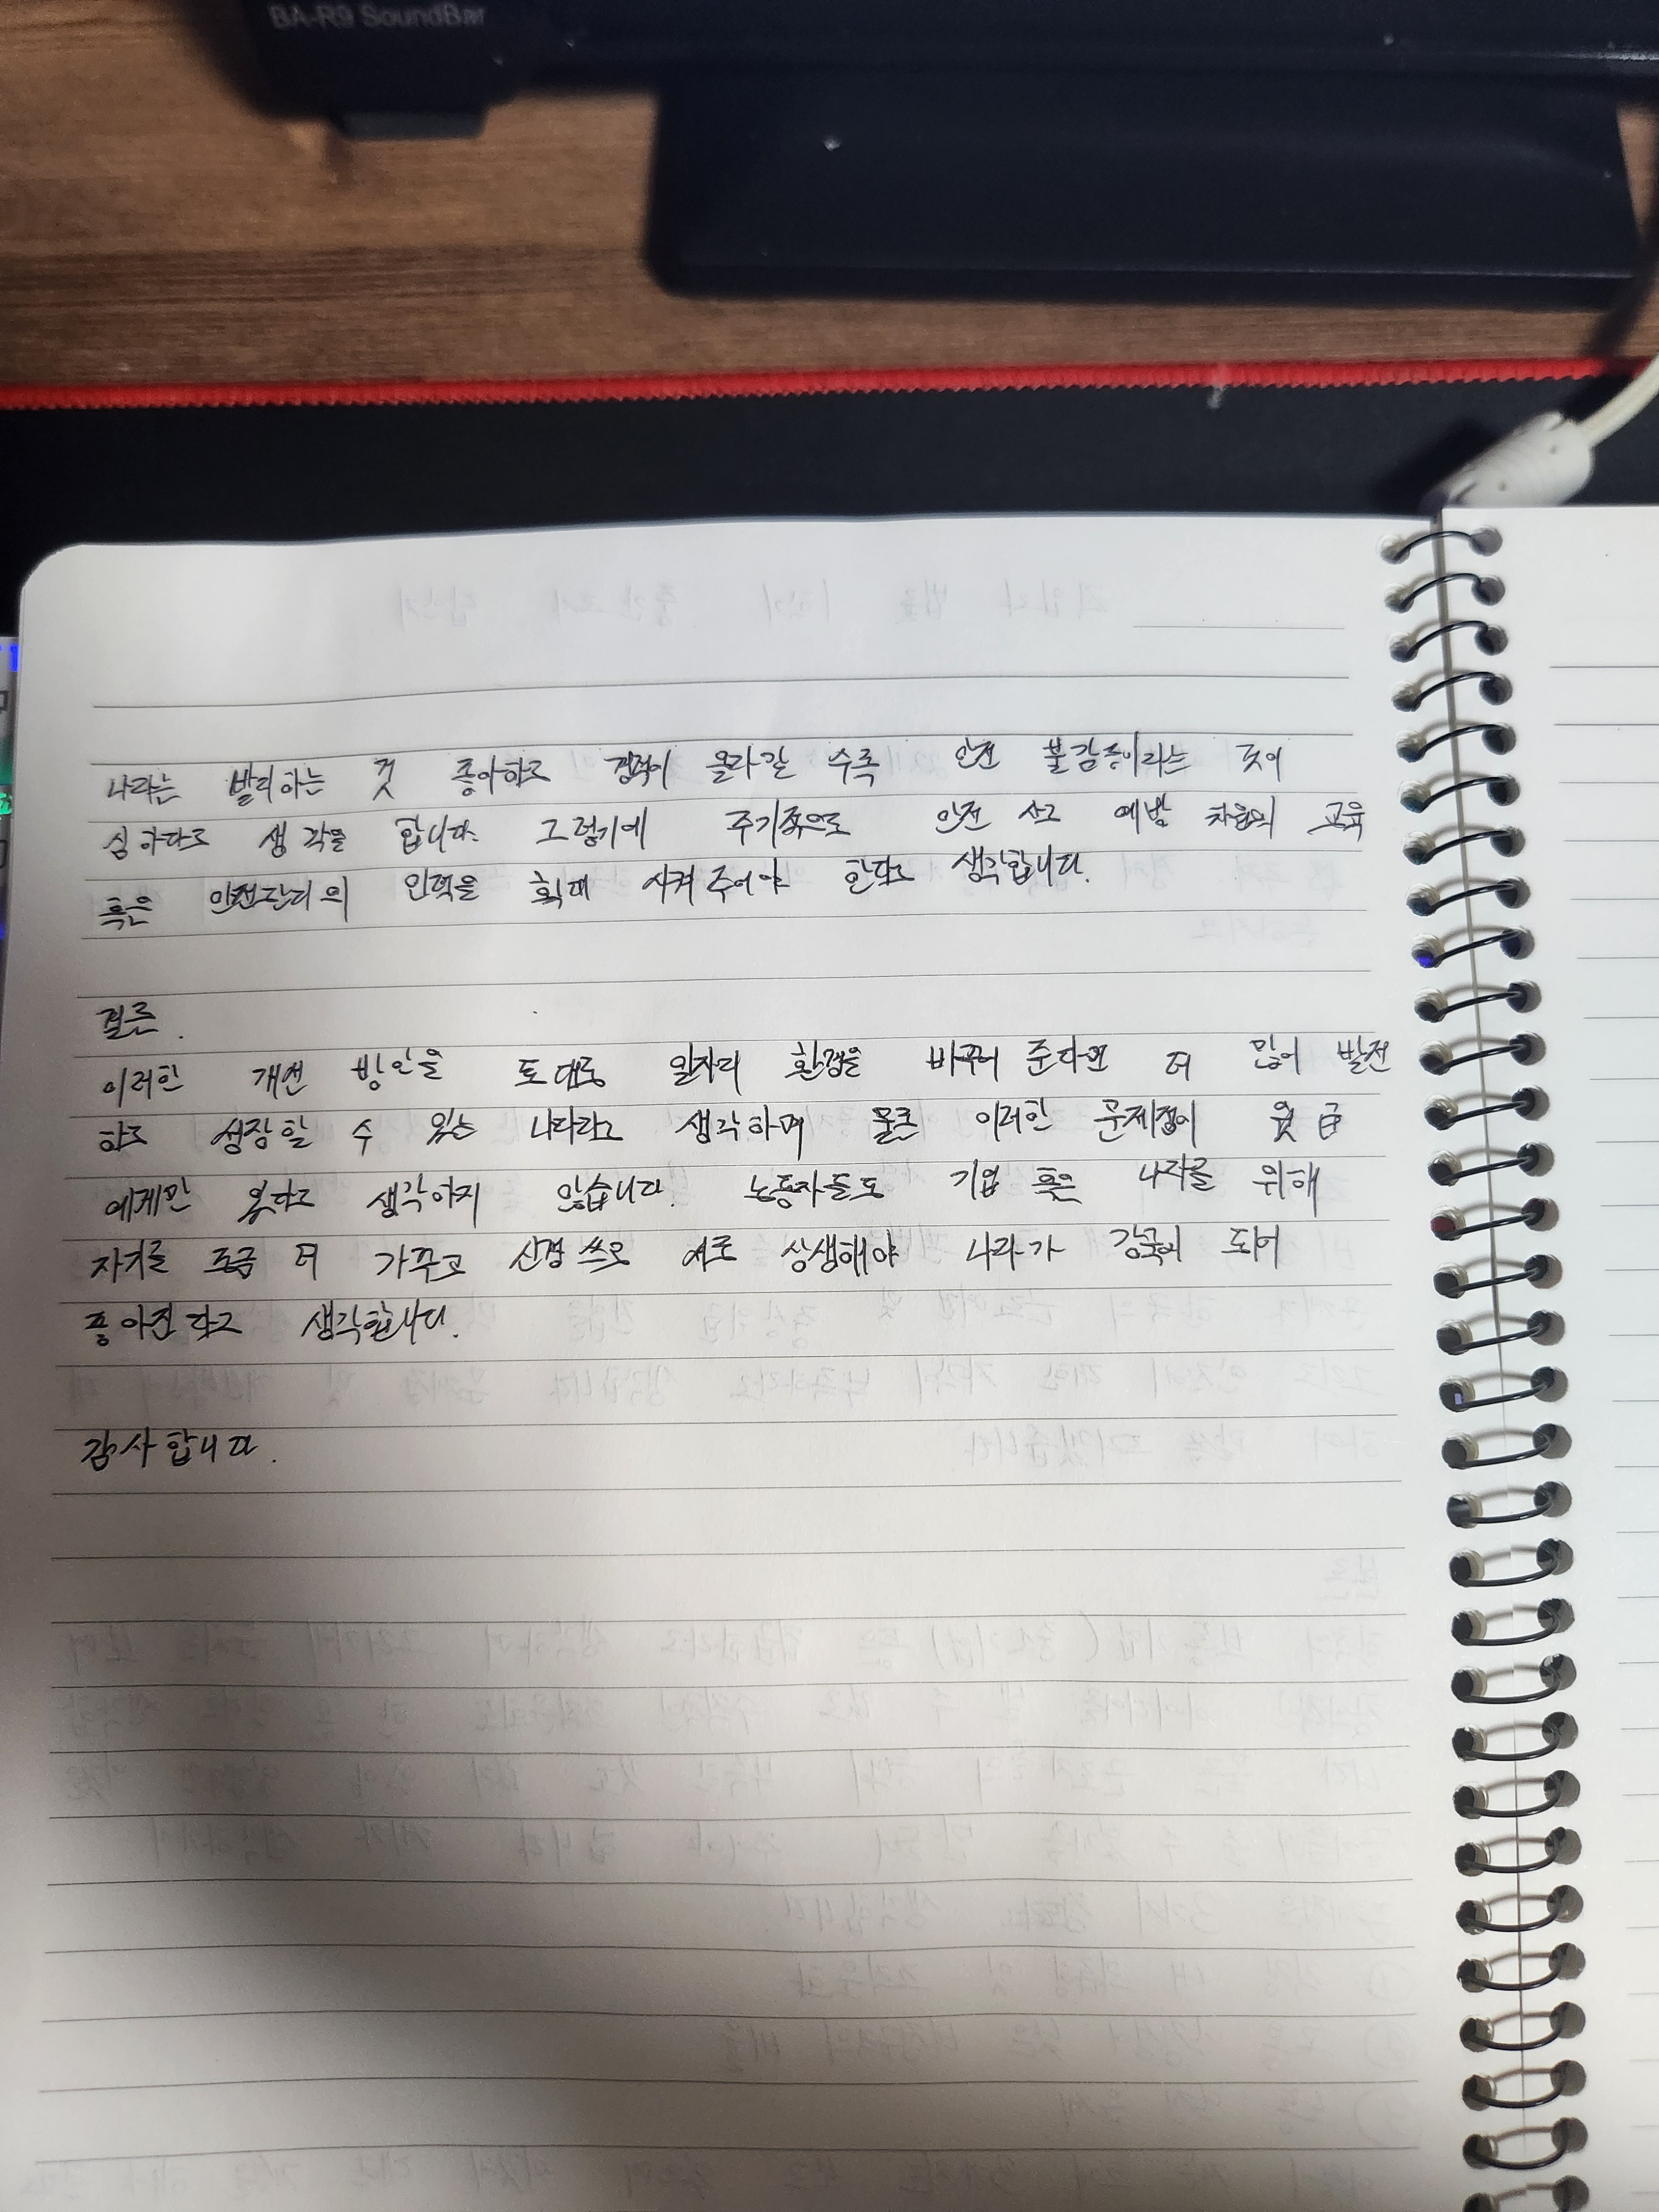 BA-R9 SoundBar
나라는 빨리하는 것 좋아하고 경력이 올라갈 수록 안전 불감증이라는 것이
심하다고 생각을 합니다. 그렇기에 주기적으로 안전 사고 예방 차원의 교육
혹은 안전관리의 인력을 확대 시켜 주어야 한다고 생각합니다.
결론.
이러한 개선 방안을 토대로 일자리 환경을 바꾸어 준다면 더 많이 발전
하고 성장할 수 있는 나라라고 생각하며 물론 이러한 문제점이
에게만 있다고 생각하지 않습니다. 노동자들도 기업 혹은 나라를 위해
자기를 조금 더 가꾸고 신경 쓰고 서로 상생해야 나라가 강국이 되어
좋아진다고 생각합니다.
감사합니다.